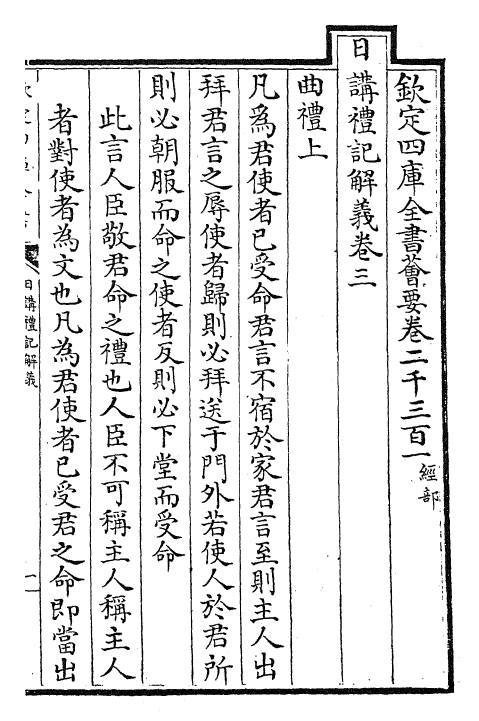 欽定四庫全書薈要卷二千三百一 經部
日講禮記解義卷三
曲禮上
凡爲君使者已受命君言不宿於家君言至則主人出
拜君言之辱使者歸則必拜送于門外若使人於君所
則必朝服而命之使者反則必下堂而受命
此言人臣敬君命之禮也人臣不可稱主人稱主人
者對使者為文也凡為君使者已受君之命即當出
日講禮記解義
一